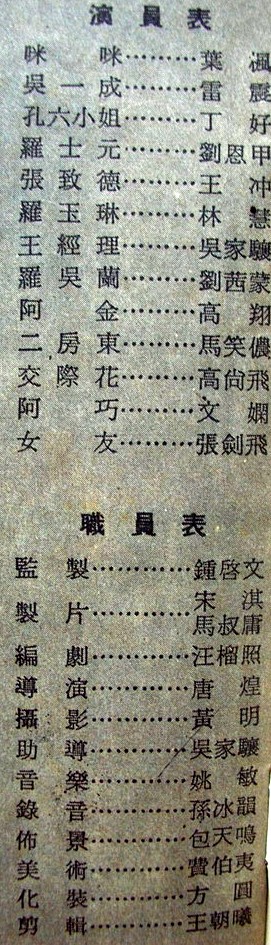 演員表
咪咪…………葉楓
吳一成…………雷震
孔六小姐…………丁好
羅士元…………劉恩甲
張致德…………王冲
羅玉琳…………林慧
王經理…………吳家驤
羅吳蘭…………劉茜蒙
阿金…………高翔
二房東…………馬笑儂
交際花…………高尙飛
阿巧…………文嫻
女友…………張劍飛
職員表
監製…………鍾啓文
製片…………宋淇
馬叔庸
編劇…………汪榴照
導演…………唐煌
攝影…………黃明
助導…………吳家驤
音樂…………姚敏
錄音…………孫冰韻
佈景…………包天鳴
美術…………費伯夷
化裝…………方圓
剪輯…………王朝曦